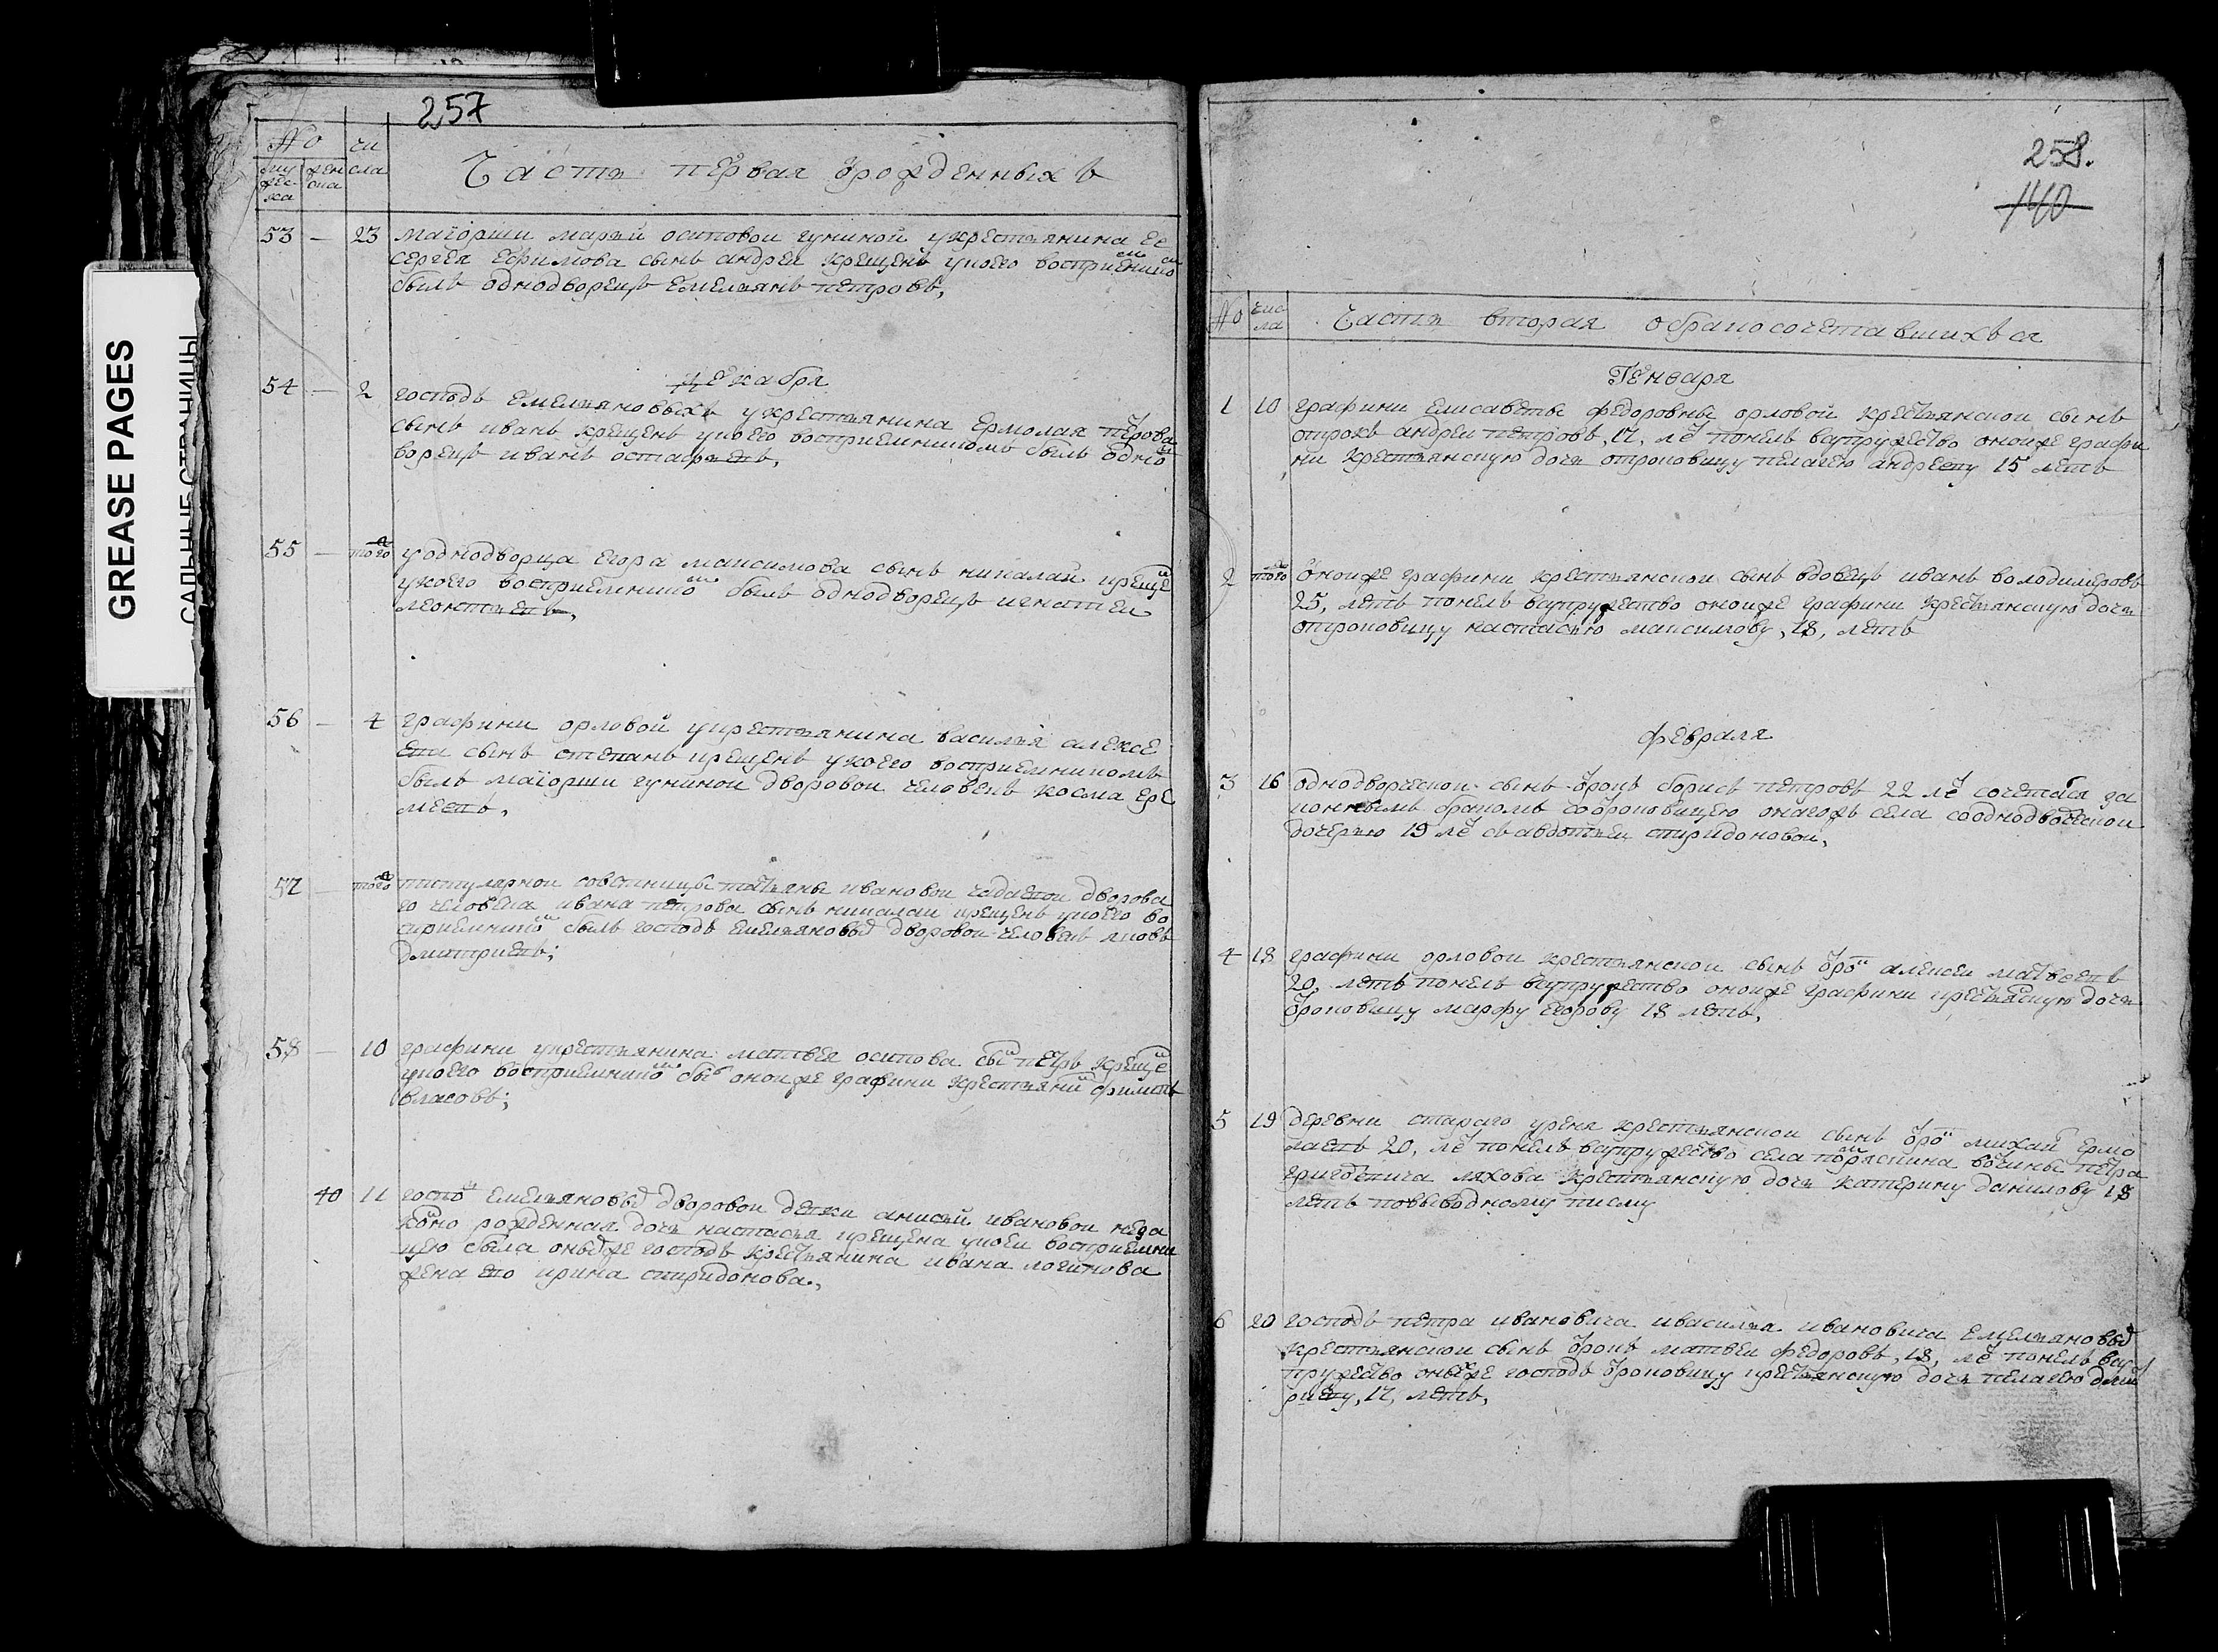 GREASE PAGES
САЛЬНЫЕ СТРАНИЦЫ
257
№ чи
му жен сла
жес ска
ка
Часть первая ѡрожденныхъ
53 — 23 маіорши марьи осиповои гуниной укрестьянина ее
сергея ефимова сынъ андреи крещенъ укоего восприемником
былъ однодворецъ емельянъ петровъ,
декабря
54 — 2 господъ емельяновыхъ укрестьянина ермолая
сынъ иванъ крещенъ укоего восприемникомъ былъ однод
ворецъ иванъ остафьевъ,
55 — того у однодворца егора максимова сынъ николаи креще
укоего восприемником былъ однодворецъ игнатеи
леонтьевъ,
56 — 4 графини орловой укрестьянина василья алексе
ева сынъ степанъ крещенъ укоего восприемникомъ
былъ маіорши гуниной дворовои человекъ косма ере
меевъ,
57 — того титулярнои советницы татьяны ивановои дворова
го человека ивана петрова сынъ николаи крещенъ укоего во
сприемником былъ господъ емельяновых дворовои человекъ яковъ
дмитриевъ;
58 — 10 графини укрестьянина матвея осипова сын петръ креще
укоего восприемником был оноиже графини крестьянин
власовъ;
40 11 господ емельяновых дворовои девки анисьи ивановои неза
конно рожденная дочь настасья крещена укоеи восприемни
цею была оныхже господъ крестьянина ивана логинова
жена ево ирина спиридонова.,
258.
140
№ чис
ла
Часть вторая обракосочетавшихъся
Генваря
1 10 графини елисаветы федоровны орловой крестьянскои сынъ
отрокъ андреи петровъ, 17, ле понелъ всупружество оноиже графи
ни крестьянскую дочь отроковицу пелагею андрееву 15 летъ
2 того оноиже графини крестьянскои сынъ вдовецъ иванъ володимеровъ
25, летъ понелъ всупружество оноиже графини крестьянскую дочь
отроковицу настасью максимову, 18, летъ
февраля
3 16 однодворческои сынъ ѡрокъ борисъ петровъ 22 ле сочетался за
коннымъ бракомъ соѡроковицею онагожъ села соднодворческои
дочерью 19 ле съ авдотьеи спиридоновои,
4 18 графини орловои крестьянскои сынъ ѡрок алексеи матвеевъ
20, летъ понелъ всупружество оноиже графини крестьянскую дочь
ѡроковицу марфу егорову 18 летъ,
5 19 деревни стараго уреня крестьянскои сынъ ѡрок михаил ермо
лаевъ 20, ле понелъ всупружество села вочины петра
григоревича ляхова крестьянскую дочь катерину данилову 18
летъ повыводному писму
6 20 господъ петра ивановича ивасилья ивановича емельяновых
крестьянскои сынъ ѡрокъ матвеи федоровъ, 18, ле понелъ всу
пружество оныхже господъ ѡроковицу крестьянскую дочь пелагею дмит
риеву, 17, летъ,